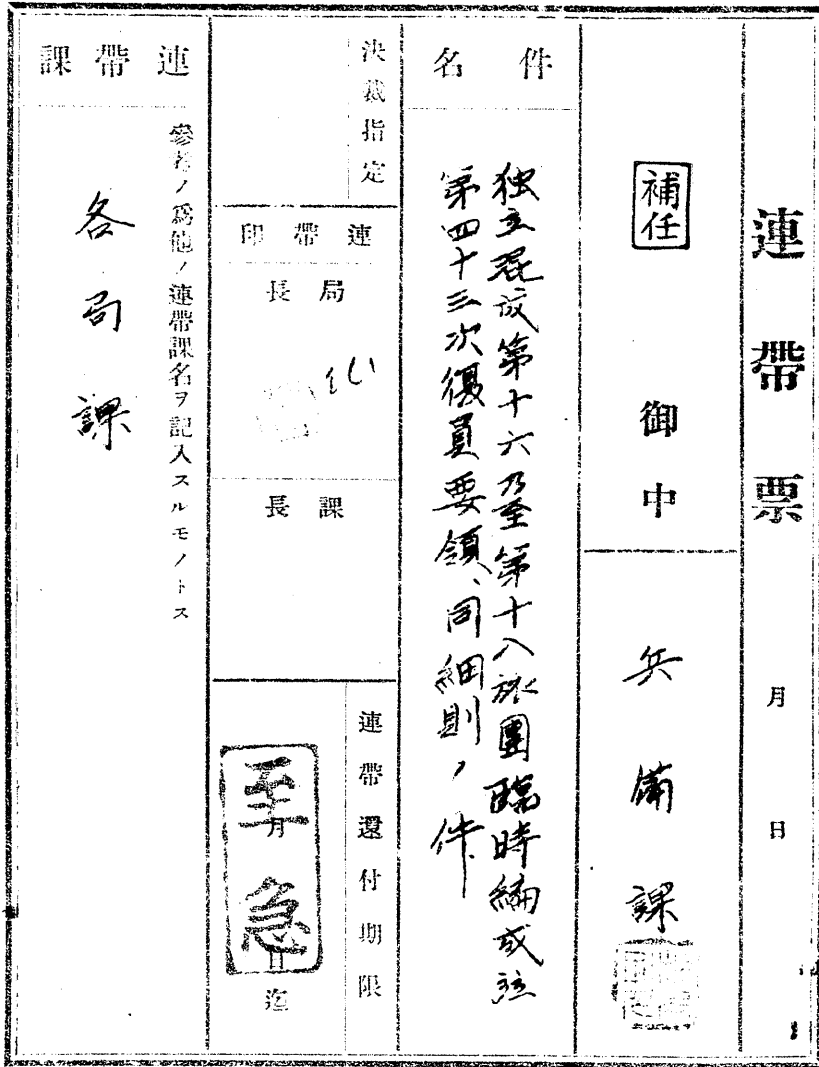 連帶票
月 日
補任 御中
兵備課
件名
独立混成第十六乃至第十八旅團臨時編成竝
第四十三次復員要領、同細則ノ件
決裁指定
連帶印
局長
課長
連帶還付期限
至急
月 日迄
連帶課
參考ノ爲他ノ連帶課名ヲ記入スルモノトス
各局課